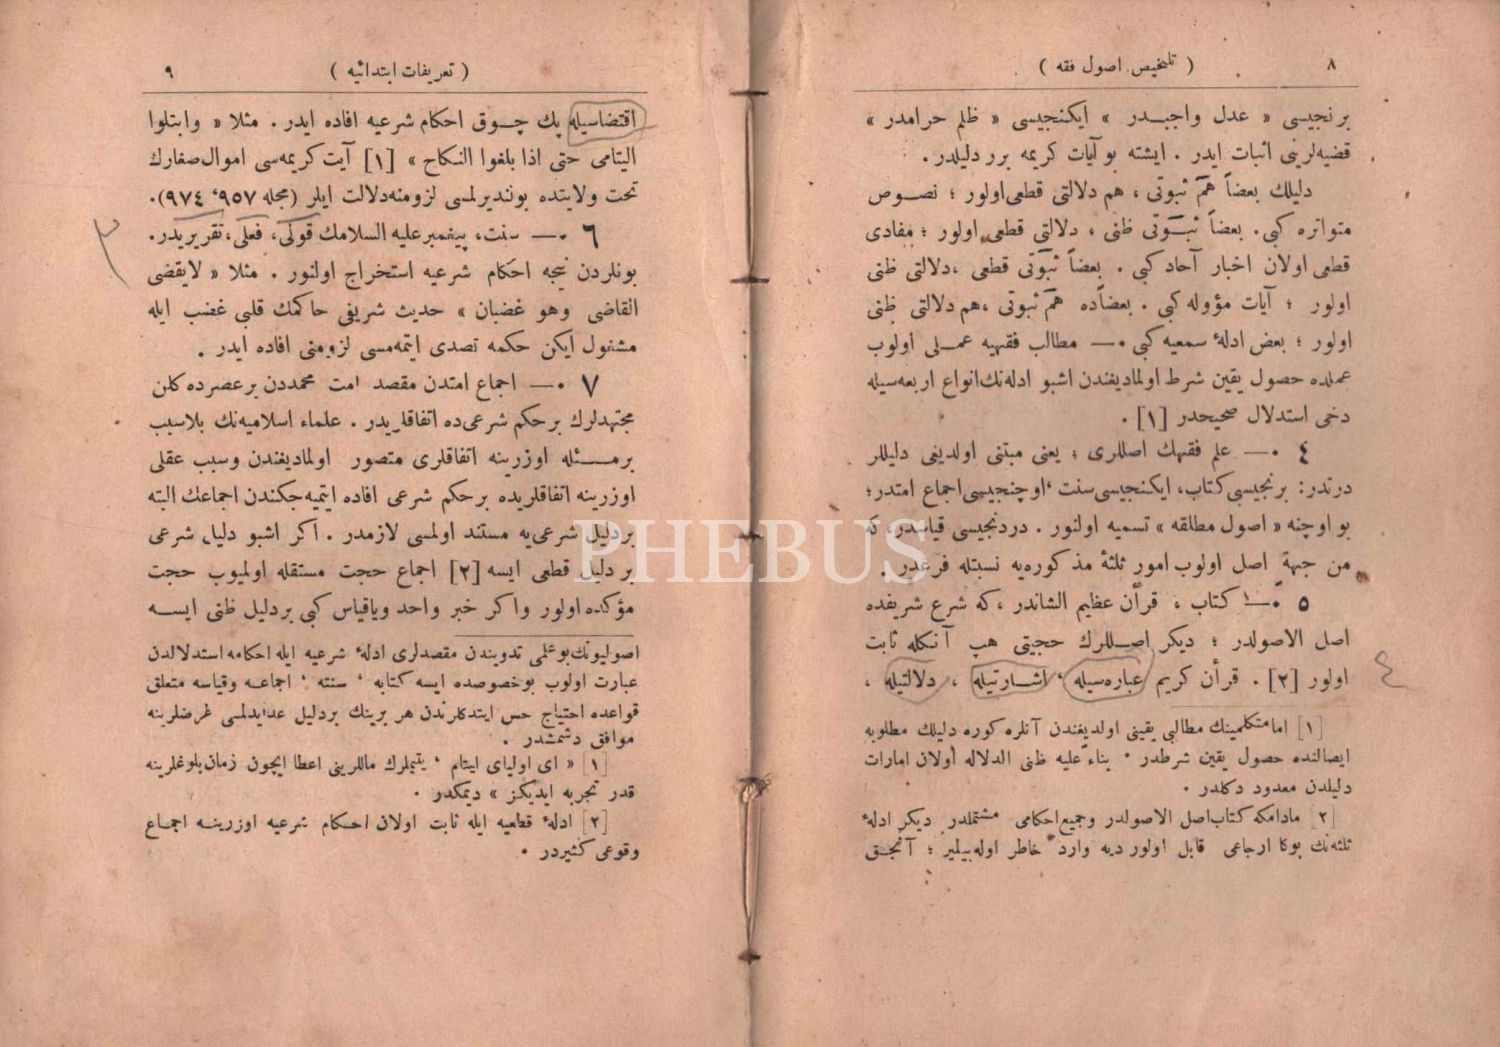 ٨
( تلخيص اصول فقه )
برنجيسى « عدل واجبدر » ايكنجيسى « ظلم حرامدر »
قضيه‌لرينى اثبات ايدر . ايشته بو آيات كريمه برر دليلدر.
دليلك بعضاً هم ثبوتى ، هم دلالتى قطعى اولور ؛ نصوص
متواتره كبى. بعضاً ثبوتى ظنى ، دلالتى قطعى اولور ؛ مفادى
قطعى اولان اخبار آحاد كبى . بعضاً ثبوتى قطعى ، دلالتى ظنى
اولور ؛ آيات مؤوله كبى . بعضاده هم ثبوتى ، هم دلالتى ظنى
اولور ؛ بعض ادلهٔ سمعيه كبى .— مطالب فقهيه عملى اولوب
عملده حصول يقين شرط اولماديغندن اشبو ادله‌نك انواع اربعه‌سيله
دخى استدلال صحيحدر [١] .
٤ .— علم فقهك اصللرى ؛ يعنى مبتنى اولديغى دليللر
درتدر: برنجيسى كتاب، ايكنجيسى سنت ، اوچنجيسى اجماع امتدر؛
بو اوچنه « اصول مطلقه » تسميه اولنور . دردنجيسى قياسدر، كه
من جهة اصل اولوب امور ثلثهٔ مذكوره‌يه نسبتله فرعدر .
٥ .— كتاب ، قرأن عظيم الشاندر ، كه شرع شريفده
اصل الاصولدر ؛ ديكر اصللرك حجيتى هپ آنكله ثابت
اولور [٢] . قرأن كريم عباره‌سيله ، اشارتيله ، دلالتيله ،
٤
[١] اما متكلمينك مطالبى يقينى اولديغندن آنلره كوره دليلك مطلوبه
ايصالنده حصول يقين شرطدر . بناءً عليه ظنى الدلاله اولان امارات
دليلدن معدود دكلدر .
[٢] مادامكه كتاب اصل الاصولدر وجميع احكامى مشتملدر ديكر ادلهٔ
ثلثه‌نك بوكا ارجاعى قابل اولور ديه وارد خاطر اوله‌بيلير ؛ آنجق
( تعريفات ابتدائيه )
٩
اقتضاسيله پك چوق احكام شرعيه افاده ايدر . مثلا « وابتلوا
اليتامى حتى اذا بلغوا النكاح » [١] آيت كريمه‌سى اموال صغارك
تحت ولايتده بولنديرلمسى لزومنه دلالت ايلر (مجله ٩٥٧، ٩٧٤).
٦ .— سنت، پيغمبر عليه السلامك قولى، فعلى، تقريريدر.
بونلردن نيجه احكام شرعيه استخراج اولنور . مثلا « لايقضى
القاضى وهو غضبان » حديث شريفى حاكمك قلبى غضب ايله
مشغول ايكن حكمه تصدى ايتمه‌مسى لزومنى افاده ايدر .
٧ .— اجماع امتدن مقصد امت محمددن برعصرده كلن
مجتهدلرك برحكم شرعى‌ده اتفاقلريدر . علماء اسلاميه‌نك بلاسبب
برمسئله اوزرينه اتفاقلرى متصور اولماديغندن وسبب عقلى
اوزرينه اتفاقلريده برحكم شرعى افاده ايتميه‌جكندن اجماعك البته
بردليل شرعى‌يه مستند اولمسى لازمدر . اكر اشبو دليل شرعى
بر دليل قطعى ايسه [٢] اجماع حجت مستقله اولميوب حجت
مؤكده اولور واكر خبر واحد وياقياس كبى بردليل ظنى ايسه
اصوليونك بو علمى تدويندن مقصدلرى ادلهٔ شرعيه ايله احكامه استدلالدن
عبارت اولوب بوخصوصده ايسه كتابه ، سنته ، اجماعه وقياسه متعلق
قواعده احتياج حس ايتدكلرندن هر برينك بردليل عد ايدلمسى غرضلرينه
موافق دشمشدر .
[١] « اى اولياى ايتام ، يتيملرك ماللرينى اعطا ايچون زمان بلوغلرينه
قدر تجربه ايديكز » ديمكدر .
[٢] ادلهٔ قطعيه ايله ثابت اولان احكام شرعيه اوزرينه اجماع
وقوعى كثيردر .
PHEBUS